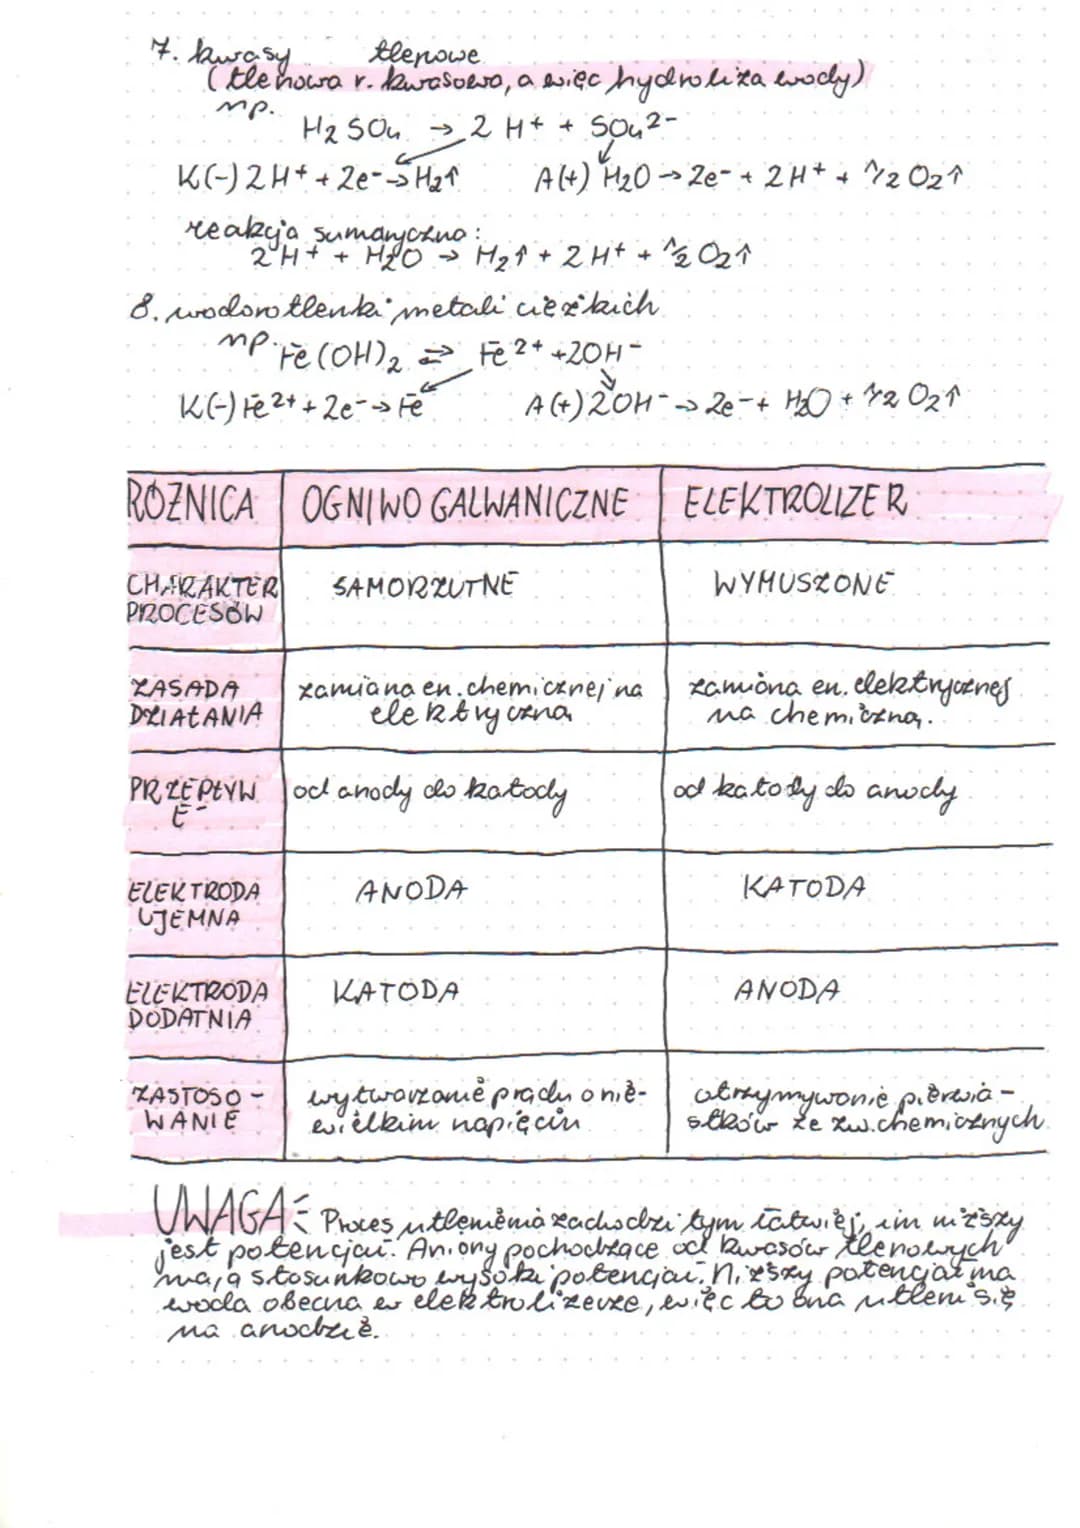 7. kwasy tlenowe
(tlenowa r. kwasowa, a więc hydroliza wody)
np.
H2SO4 → 2H+ + SO4 2-
K(-) 2H+ + 2e- → H2↑ A(+) H2O → 2e- + 2H+ + 1/2 O2↑
reakcja sumaryczna:
2H+ + H2O → H2↑ + 2H+ + 1/2 O2↑
8. wodorotlenki metali ciężkich
np. Fe(OH)2 ⇄ Fe2+ + 2OH-
K(-) Fe2+ + 2e- → Fe A(+) 2OH- → 2e- + H2O + 1/2 O2↑
RÓŻNICA OGNIWO GALWANICZNE ELEKTROLIZER
CHARAKTER PROCESÓW SAMORZUTNE WYMUSZONE
ZASADA DZIAŁANIA zamiana en. chemicznej na elektryczną zamiana en. elektrycznej na chemiczną.
PRZEPŁYW E- od anody do katody od katody do anody
ELEKTRODA UJEMNA ANODA KATODA
ELEKTRODA DODATNIA KATODA ANODA
ZASTOSOWANIE wytwarzanie prądu o niewielkim napięciu otrzymywanie pierwiastków ze zw. chemicznych
UWAGA: Proces utlenienia zachodzi tym łatwiej, im niższy
jest potencjał. Aniony pochodzące od kwasów tlenowych
mają stosunkowo wysoki potencjał. Niższy potencjał ma
woda obecna w elektrolizerze, więc to ona utleni się
na anodzie.